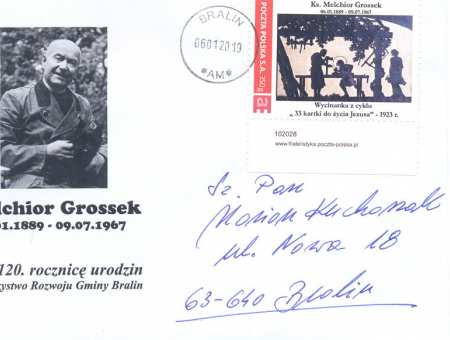 BRALIN
06012019
*AM*
POCZTA POLSKA S.A.
350g
Ks. Melchior Grossek
06.01.1889 - 09.07.1967
Wycinanka z cyklu
„33 kartki do życia Jezusa” - 1923 r.
102028
www.filatelistyka.poczta-polska.pl
lchior Grossek
01.1889 - 09.07.1967
120. rocznicę urodzin
zystwo Rozwoju Gminy Bralin
Sz. Pan
Marian Kucharzak
ul. Nowa 18
63-640 Bralin